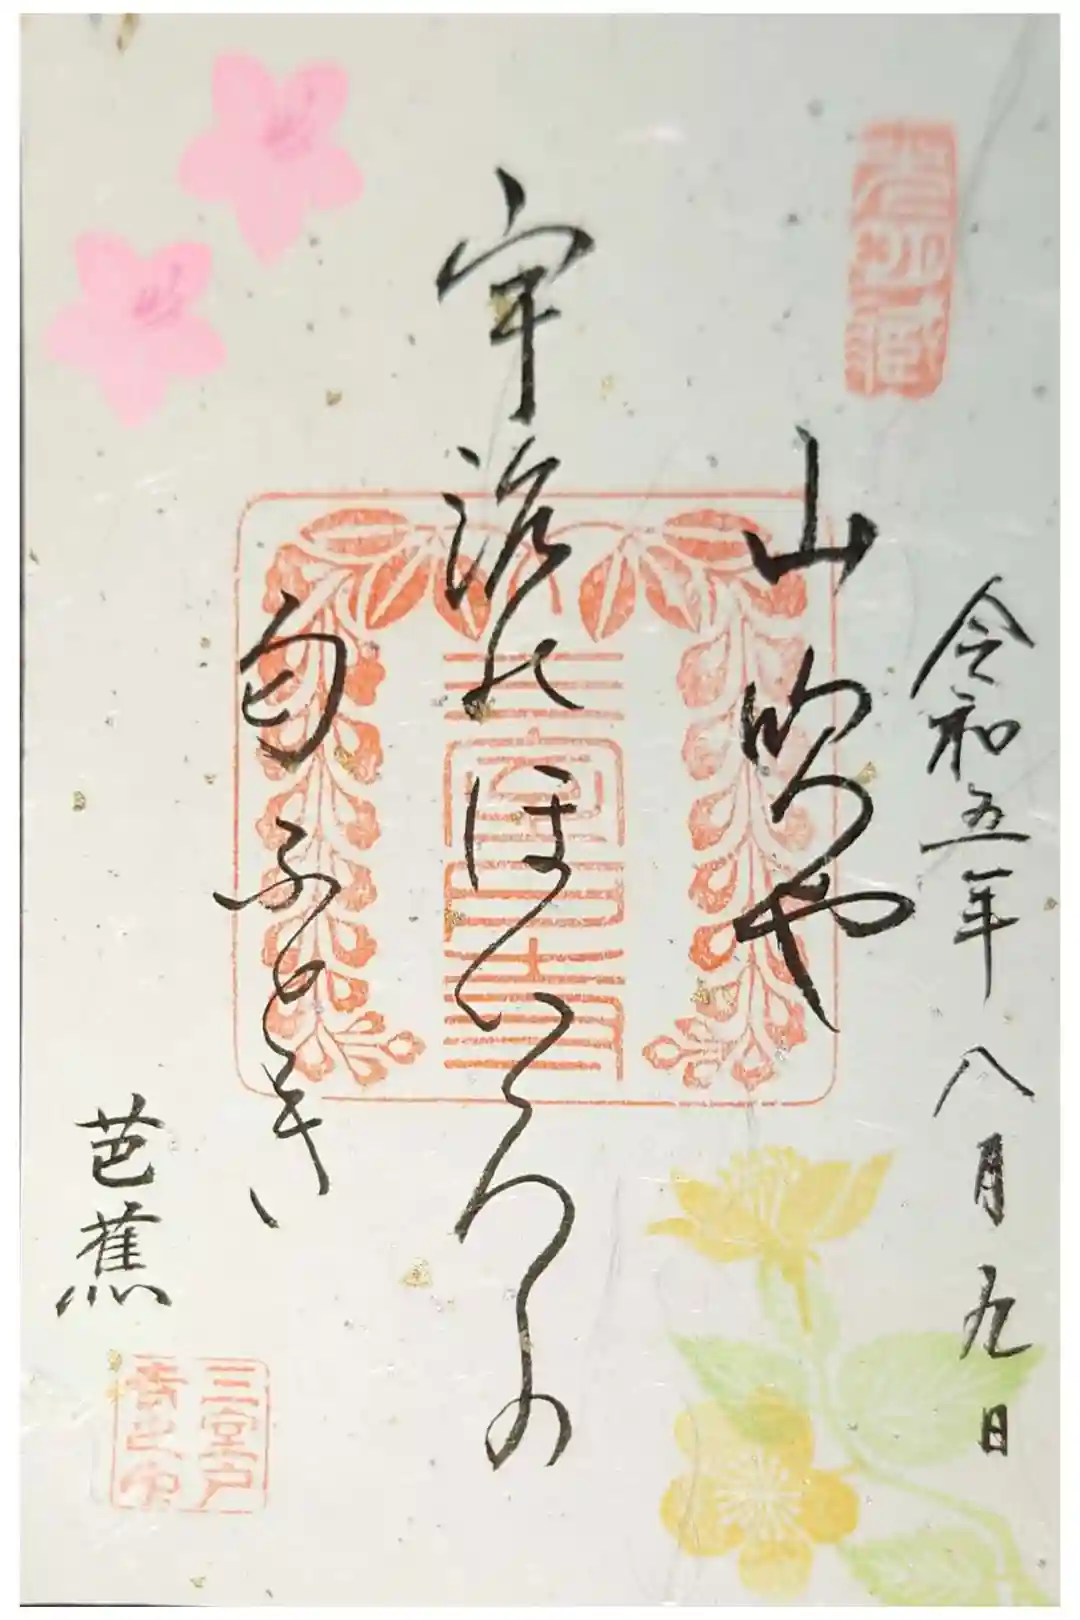 令和五年八月九日
山吹や
宇治のほいろの
匂ふとき
芭蕉
三室戸寺
三室戸寺之印